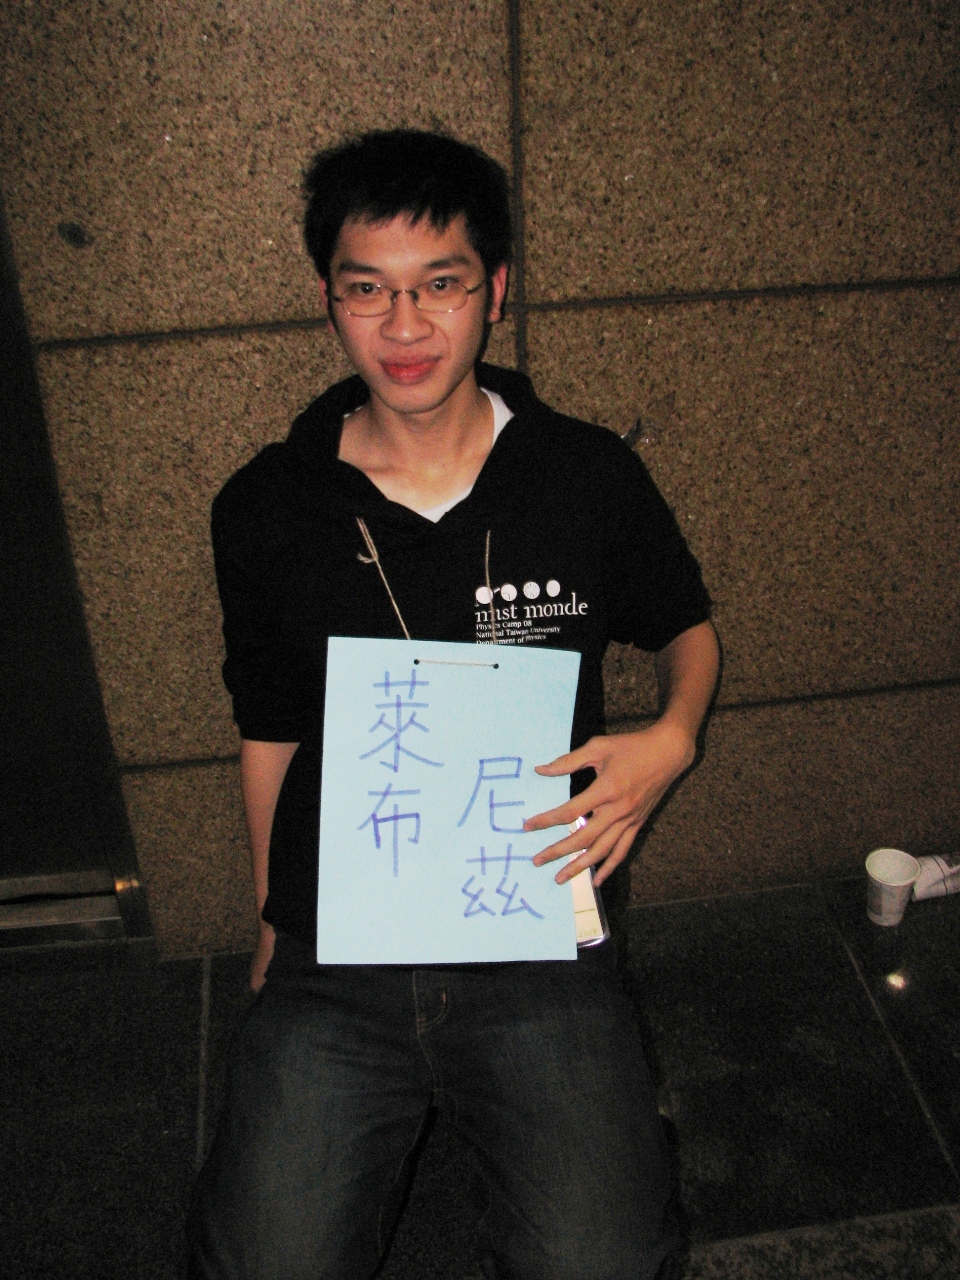 must monde
Physics Camp 08
National Taiwan University
Department of Physics
萊布
尼茲